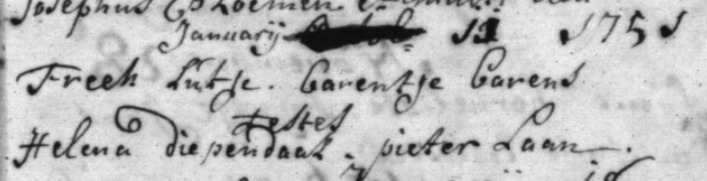 Josephus Bloemen et
January 11 1751
Freek Lutje. Barentje Barens
Testes
Helena diependaal. pieter Laan.